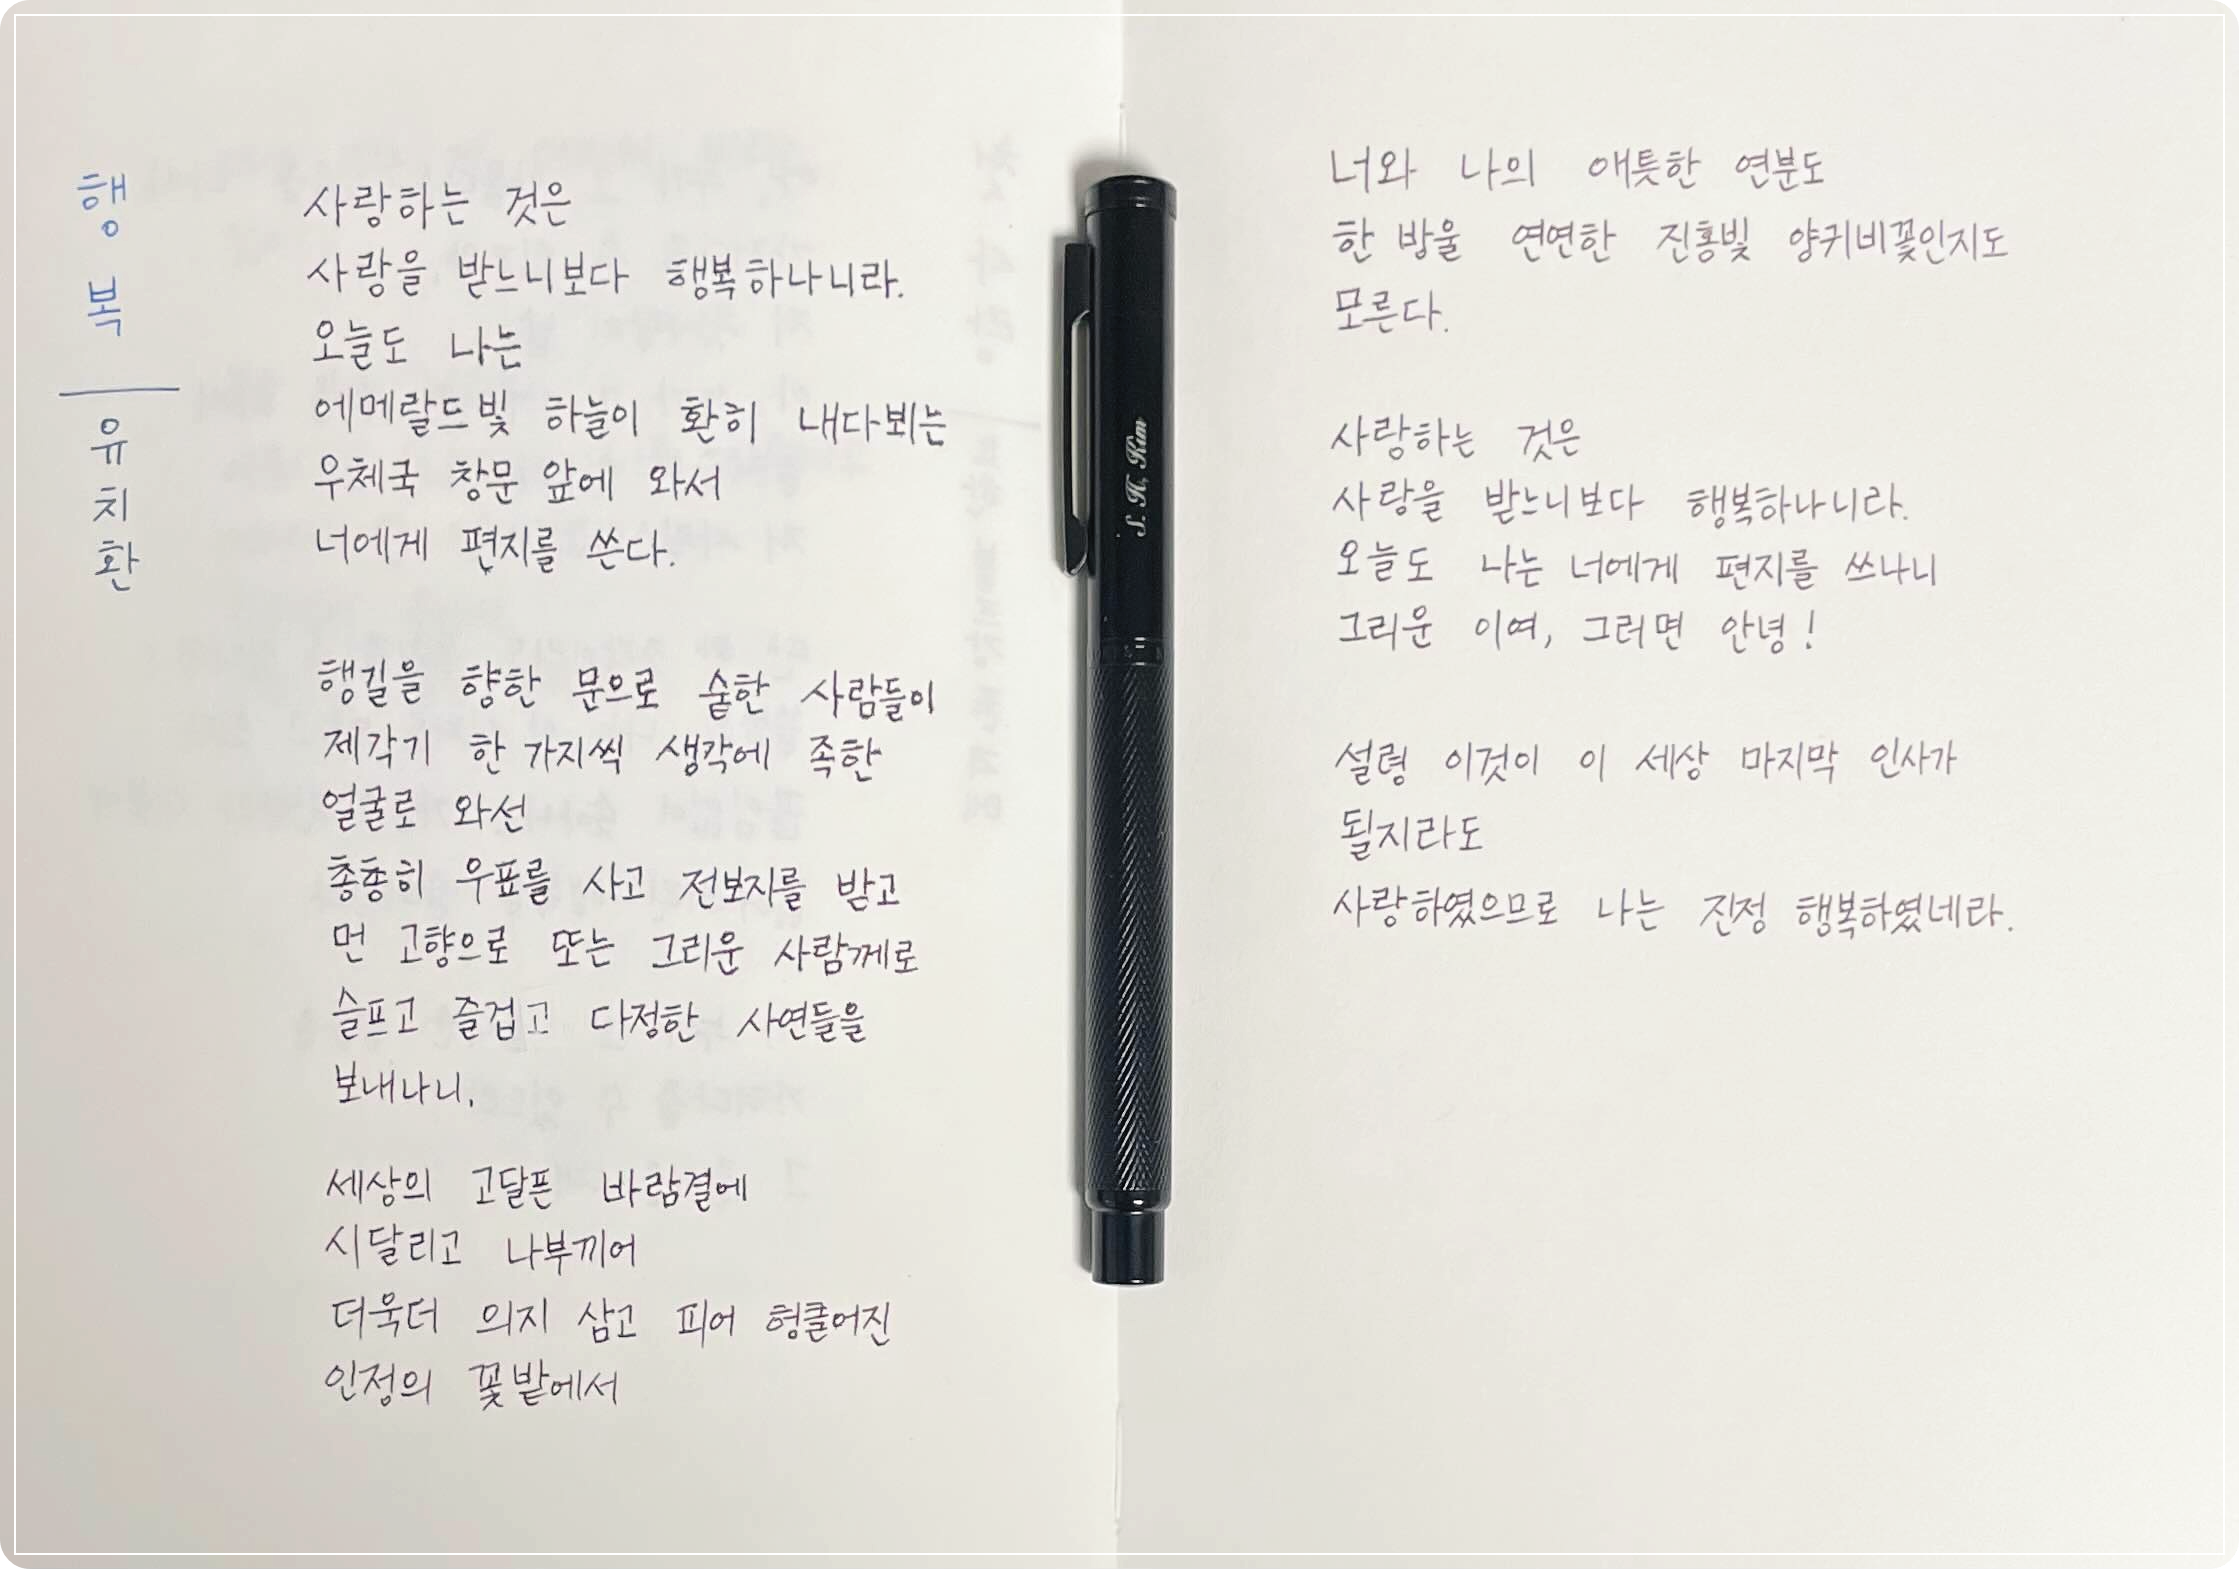 행복
유치환
사랑하는 것은
사랑을 받느니보다 행복하나니라.
오늘도 나는
에메랄드빛 하늘이 환히 내다뵈는
우체국 창문 앞에 와서
너에게 편지를 쓴다.
행길을 향한 문으로 숱한 사람들이
제각기 한 가지씩 생각에 족한
얼굴로 와선
총총히 우표를 사고 전보지를 받고
먼 고향으로 또는 그리운 사람께로
슬프고 즐겁고 다정한 사연들을
보내나니.
세상의 고달픈 바람결에
시달리고 나부끼어
더욱더 의지 삼고 피어 헝클어진
인정의 꽃밭에서
너와 나의 애틋한 연분도
한 방울 연연한 진홍빛 양귀비꽃인지도
모른다.
사랑하는 것은
사랑을 받느니보다 행복하나니라.
오늘도 나는 너에게 편지를 쓰나니
그리운 이여, 그러면 안녕!
설령 이것이 이 세상 마지막 인사가
될지라도
사랑하였으므로 나는 진정 행복하였네라.
S. K, Kim